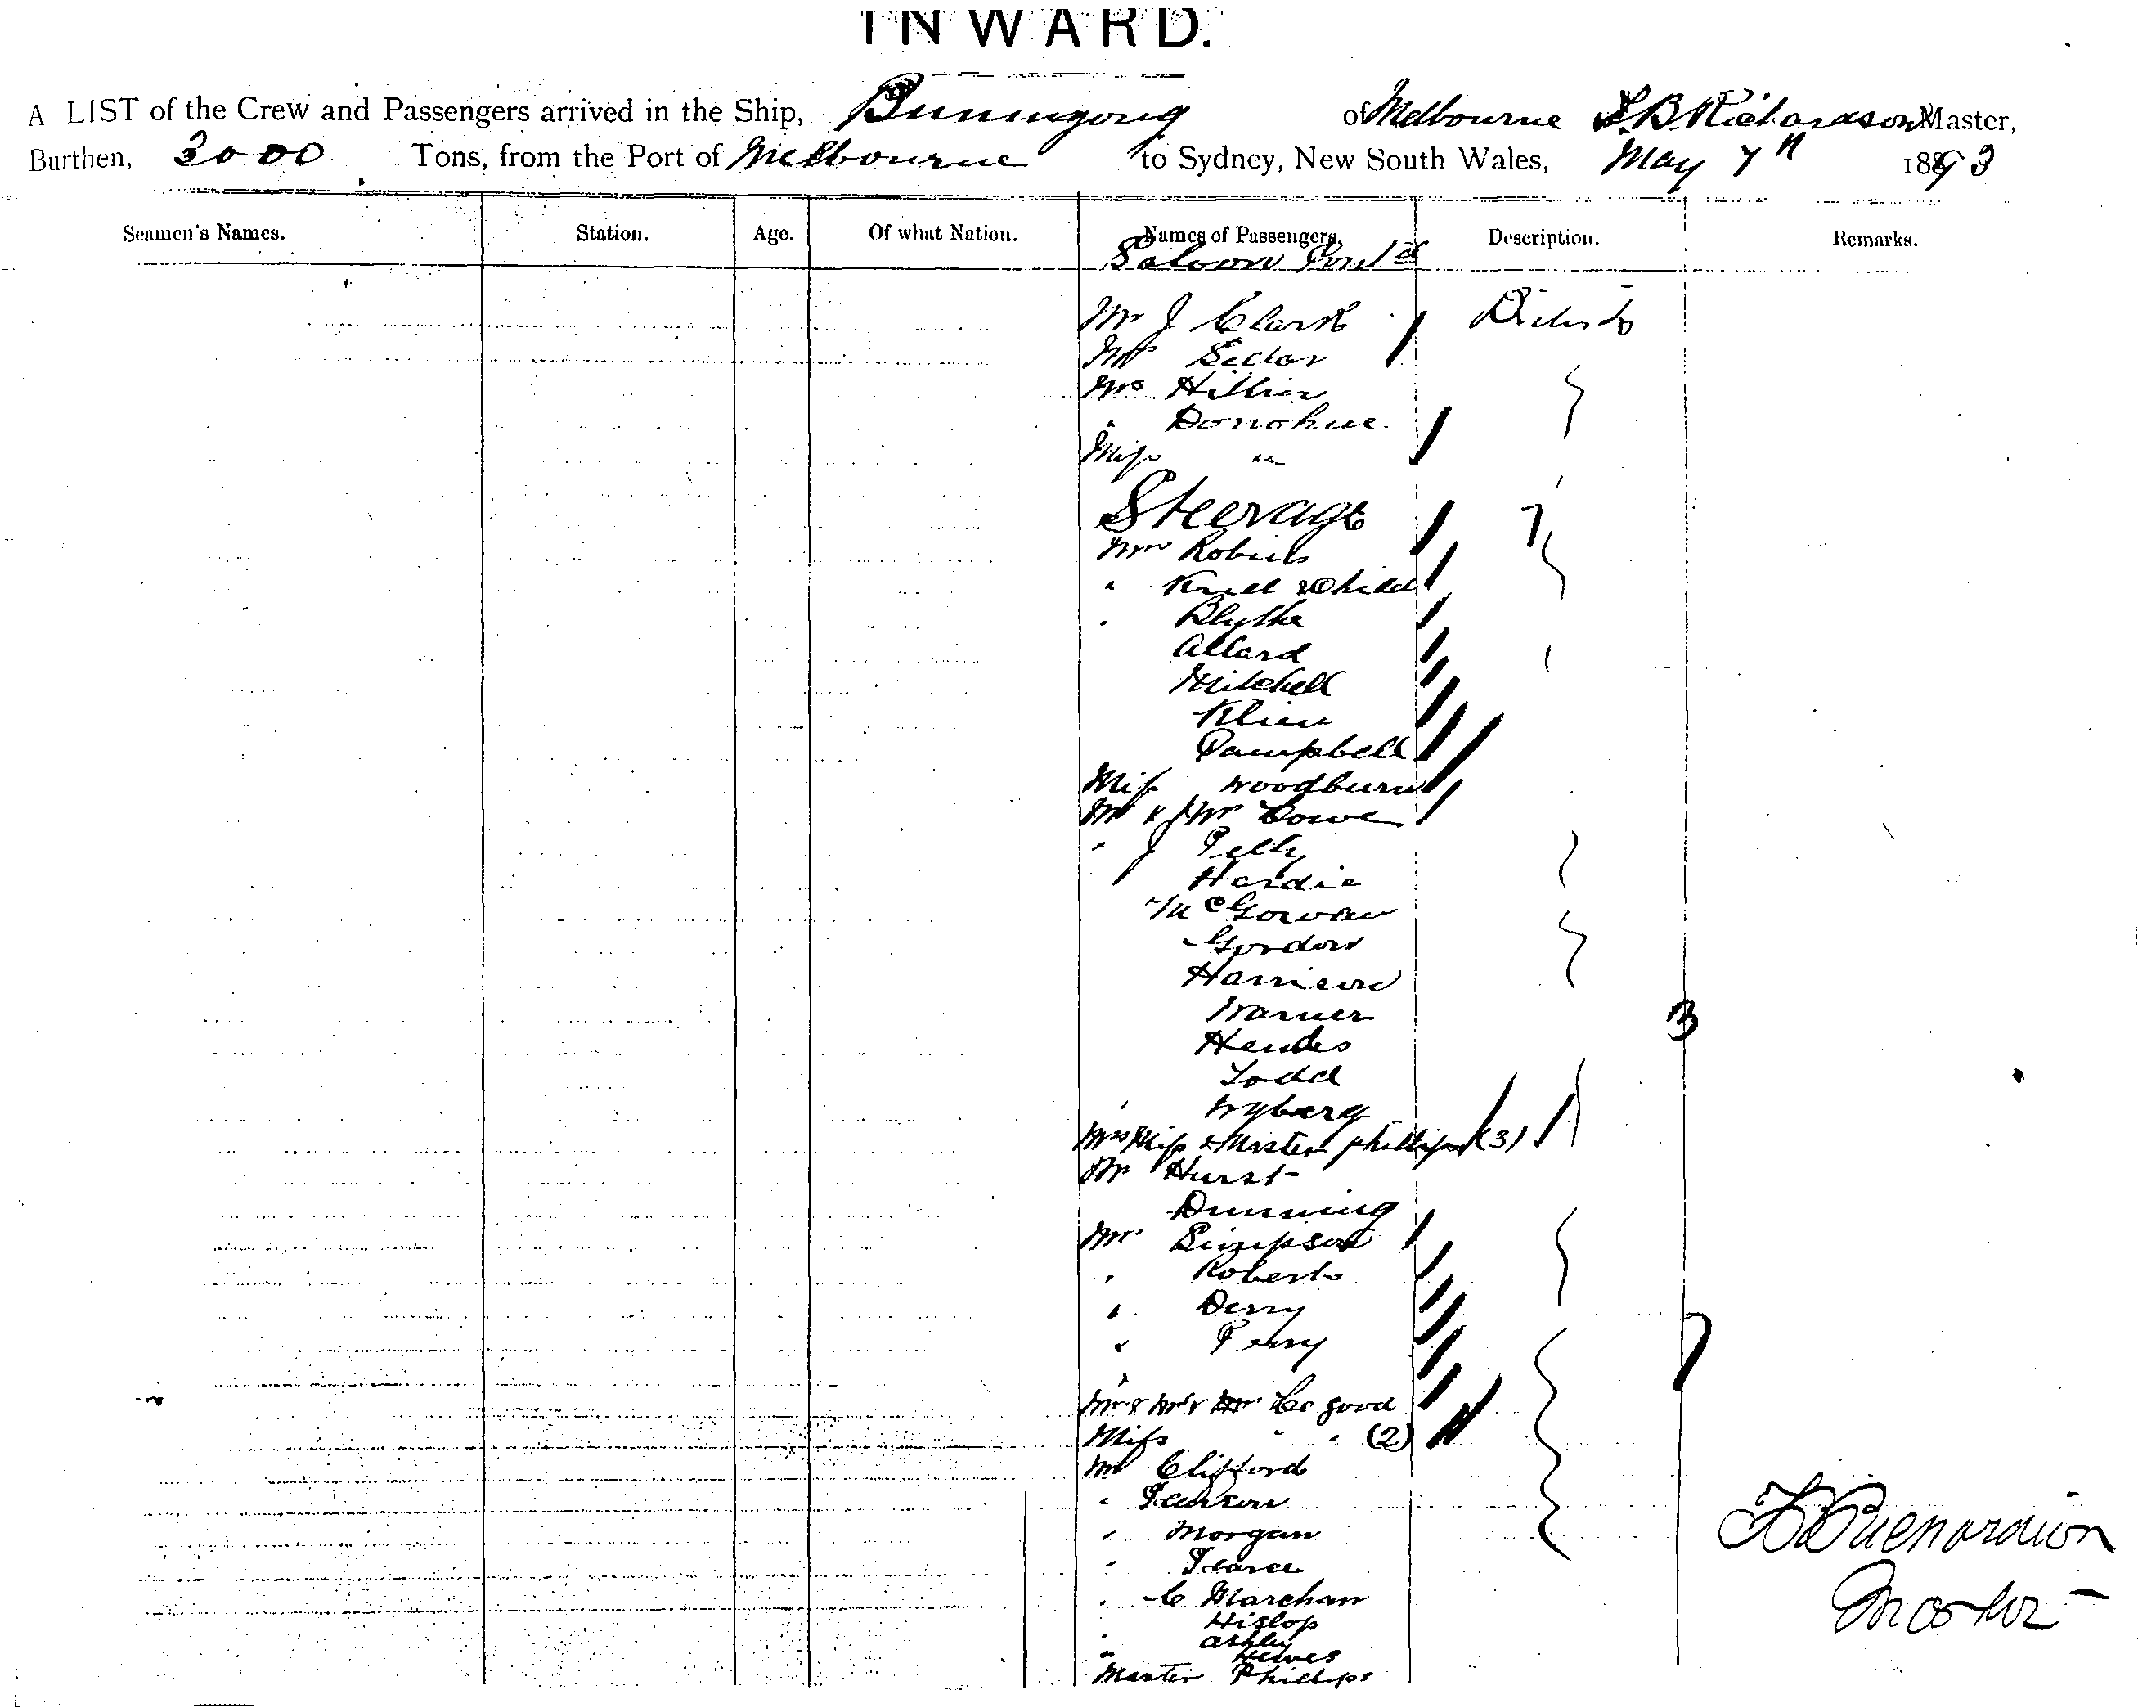 INWARD.
A LIST of the Crew and Passengers arrived in the Ship, Buningong of Melbourne Richardson Master,
Burthen, 2000 Tons, from the Port of Melbourne to Sydney, New South Wales, May 7th 1893
Seamen's Names. Station. Age. Of what Nation. Names of Passengers. Description. Remarks.
Saloon Contd
Mr J Clark
Mr
Mrs Hillier
" Donohue
Miss "
Steerage 7
Mrs
" & Child
" Blythe
Allard
Mitchell
Klien
Campbell
Miss Woodburn
Mr & Mrs Lowe
" J Pelly
Hardie
McGowan
Gordon
Harrison
Warner
3
Todd
Wyberg
Mrs Miss & Master Phillips (3)
Mr Hurst
Dunning
Mr Simpson
" Roberts
" Derry
" Perry
7
Mr & Mrs & Mr
Miss " " (2)
Mr Clifford
"
" Morgan
" Pearce
" C Marchan
" Hislop
" Ashley
"
Master Phillips
Richardson
Master